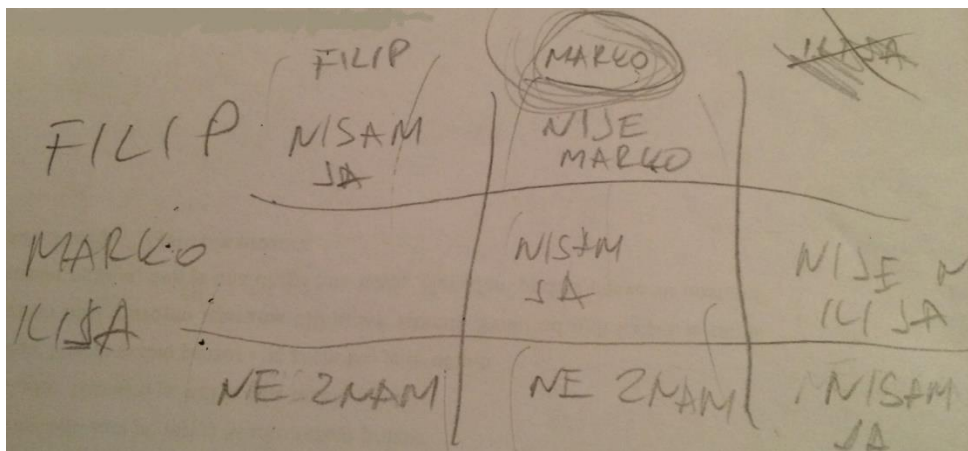 FILIP MARKO ILIJA
FILIP NISAM NIJE
JA MARKO
MARKO NISAM NIJE
JA ILIJA
ILIJA
NE ZNAM NE ZNAM NISAM
JA